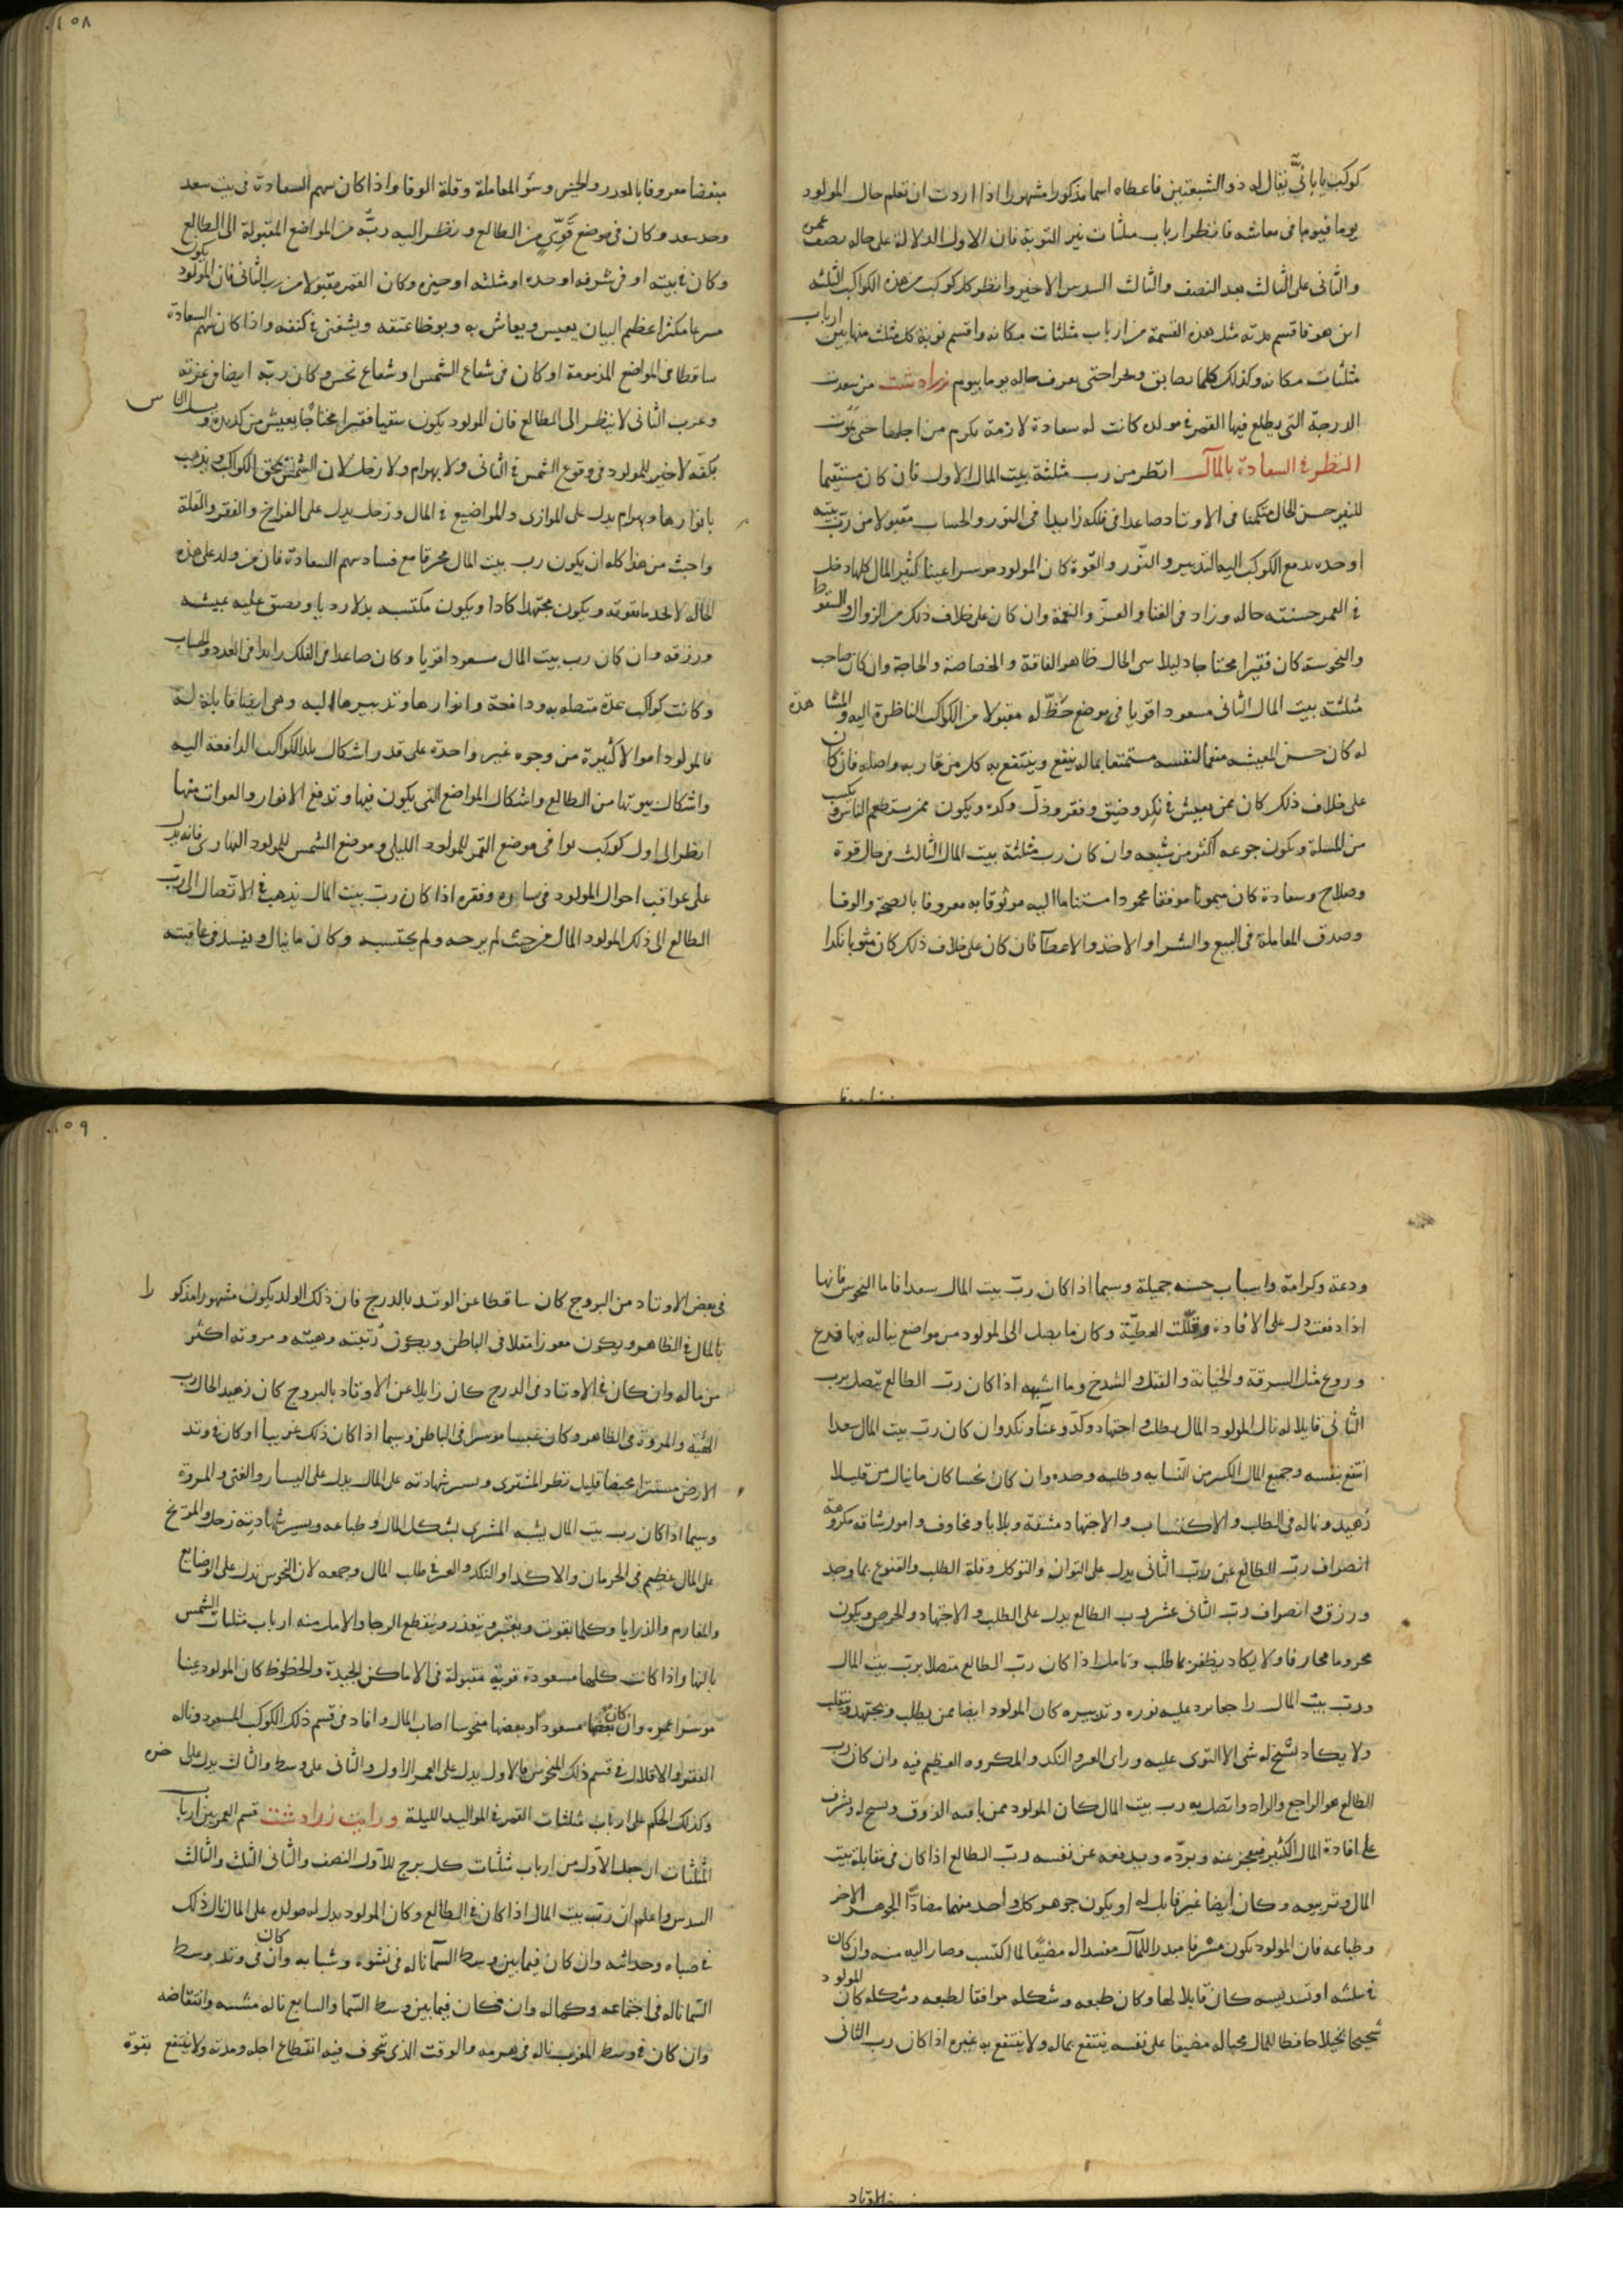 كوكب يا باني يقال له ذو الشبعتين فاعطاه اسما مذكورا مشهورا اذا اردت ان تعلم حال المولود
يوما فيوما في معاشه فانظر ارباب مثلثات نير النوبة فان الاول الدلالة على حاله نصف عمره
والثاني على الثالث بعد النصف والثالث السدس الاخير وانظر كل كوكب من هذه الكواكب الثلثه
اين هو فاقسم مدته مثل هذه القسمة من ارباب مثلثات مكانه واقسم نوبة كل مثلث منها بين ارباب
مثلثات مكانه وكذلك كلما حتى يعرف حاله يوما بيوم زرادشت من سعدت
الدرجة التي يطلع فيها القمر في مولده كانت له سعادة لازمة يكرم من اجلها حتى يموت
النظر في السعادة بالمال انظر من رب مثلثة بيت المال الاول فان كان مستقيما
للنير حسن الحال متمكنا في الاوتاد صاعدا في فلكه زايدا في النور والحساب مقبولا من رب بيته
او حده يدفع الكوكب اليه التدبير والنور والقوة كان المولود موسرا غنيا كثير المال كلما دخل
في العمر حسنت حاله وزاد في الغنا والعز والنعمة وان كان على خلاف ذلك من الزوال والسقوط
والنحوسة كان فقيرا محتاجا ذليلا سي الحال ظاهر الفاقة والخصاصة والحاجة وان كان صاحب
مثلثة بيت المال الثاني مسعودا قويا في موضع حظ له مقبولا من الكواكب الناظرة اليه والمشاهدة
له كان حسن المعيشه منعما لنفسه مستمتعا بماله ينفع وينتفع به كل من قاربه واصله فان كان
على خلاف ذلك كان ممن يعيش في نكد وضيق وفقر وذل وكد ويكون ممن يستطعم الناس
من المسلة ويكون جوعه اكثر من شبعه وان كان رب مثلثة بيت المال الثالث في حال قوة
وصلاح وسعادة كان ميمونا موفقا محمودا مستناما اليه موثوقا به معروفا بالصحة والوفا
وصدق المعاملة في البيع والشرا والاخذ والاعطا فان كان على خلاف ذلك كان نكدا
١٠٥٨
مبغضا معروفا بالغدر والخبز وسو المعاملة وقلة الوفا واذا كان سهم السعادة في بيت سعد
وحد سعد وكان في موضع قوي من الطالع ونظر اليه ربه من المواضع المقبولة الى الطالع
وكان في بيته او في شرفه او حده او مثلثه او حيزه وكان القمر مقبولا من رب الثاني فان المولود يكون
عظيم البيان يعيش ويعاش به ويوطا عنقه في كنفه واذا كان سهم السعادة
ساقطا في المواضع المذمومة او كان في شعاع الشمس او شعاع نحس وكان ربه ايضا في غربة
وغرب الثاني لا ينظر الى الطالع فان المولود يكون شقيا فقيرا محتاجا يعيش من كد يده
بكفه لا خير للمولود في وقوع الشمس في الثاني ولا بهرام ولا زحل لان الشمس تحرق الكواكب وتذهب
بانوارها وبهرام يدل على الموازي والمواضيع في المال وزحل يدل على الفراخ والفقر والقلة
واخبث من هذا كله ان يكون رب بيت المال محرقا مع فساد سهم السعادة فان من ولد على هذه
الحاله لا يجد ما يقوته ويكون مجتهدا كادا ويكون مكتسبه ويضيق عليه عيشه
ورزقه وان كان رب بيت المال مسعودا قويا وكان صاعدا في الفلك زايدا في العدد والحساب
وكانت كواكب عدة متصله به ودافعة وانوارها وتدبيرها اليه وهي ايضا قابلة له
فالمولود اموالا كثيرة من وجوه غير واحدة على قدر اشكال تلك الكواكب الدافعة اليه
واشكال بيوتها من الطالع واشكال المواضع التي يكون فيها وتدفع الانوار والقوات منها
انظر الى اول كوكب في موضع القمر للمولود الليلي وموضع الشمس للمولود النهاري فانه يدل
على عواقب احوال المولود في يساره وفقره اذا كان رب بيت المال يذهب في الاتصال الى رب
الطالع الى ذلك المولود المال من حيث لم يرجه ولم يحتسبه وكان ما ينال ويفسد في عاقبته
ودعة وكرامة واسباب حسنه جميلة وسيما اذا كان رب بيت المال سعدا فاما النحوس فانها
اذا دفعت دل على الافادة وقللت العطية وكان ما يصل الى المولود من مواضع يناله فيها فزع
وروع مثل السرقة والخيانة والفتك والشدخ وما اشبهه اذا كان رب الطالع يتصل برب
الثاني قابلا له نال المولود المال بطلب واجتهاد وكد وعنا ونكد وان كان رب بيت المال سعدا
انتفع بنفسه وجميع المال الكسر من وطلبه وحده وان كان نحسا كان ما ينال من قليلا
زهيدا وناله في الطلب والاكتساب والاجتهاد مشقة وبلايا ومخاوف وامور شاقه مكروهة
انصراف رب الطالع عن رب الثاني يدل على التواني والتوكل وقلة الطلب والقنوع بما وجد
ورزق وانصراف رب الثاني عشر رب الطالع يدل على الطلب والاجتهاد والحرص ويكون
محروما محارفا ولا يكاد يظفر بما طلب وتامل اذا كان رب الطالع متصلا برب بيت المال
ورب بيت المال راجعا يرد عليه نوره وتدبيره كان المولود ايضا ممن يطلب ويجتهد ويتقلب
ولا يكاد يسنح له شي الا التوى عليه وراى العسر والنكد والمكروه العظيم فيه وان كان رب
الطالع هو الراجع والراد واتصل به رب بيت المال كان المولود ممن ياتيه الرزق ويسنح له ويشرف
على افادة المال الكثير فيعجز عنه ويرده ويدفعه عن نفسه رب الطالع اذا كان في مقابلة بيت
المال وتربيعه وكان ايضا غير قابل له او يكون جوهر كل واحد منهما مضادا الجوهر الاخر
وطباعه فان المولود يكون مسرفا مبذرا للمال مفسدا له مضيعا لما اكتسب وصار اليه منه وان كان
في مثلثه او تسديسه كان قابلا لها وكان طبعه وشكله موافقا لطبعه وشكله كان المولود
شحيحا بخيلا حافظا للمال محبا له مضيقا على نفسه ينتفع بماله ولا ينتفع به غيره اذا كان رب الثاني
١٠٥٩
في بعض الاوتاد من البروج كان ساقطا عن الوتد بالدرج فان ذلك الولد يكون مشهورا مذكورا
بالمال في الظاهر ويكون معوزا مقلا في الباطن ويكون رتبته وهيئته ومروته اكثر
من ماله وان كان في الاوتاد في الدرج كان زايلا عن الاوتاد بالبروج كان زهيد الحال رب
الهيئة والمروة في الظاهر وكان غنيا موسرا في الباطن وسيما اذا كان ذلك غربيا او كان في وتد
الارض مستترا قليل نظر المشتري ويسير شهادته على المال يدل على اليسار والغنى والمروة
وسيما اذا كان رب بيت المال يشبه المشتري بشكل المال وطباعه ويسير شهادته زحل والمريخ
على المال عظيم في الحرمان والاكدا والنكد والعسر في طلب المال وجمعه لان النحوس تدل على الوضايع
والمغارم والرزايا وكلما يفوت ويعسر ويتعذر وينقطع الرجا والامل منه ارباب مثلثات الشمس
بالنها واذا كانت كلها مسعودة قوية مقبولة في الاماكن الجيدة والحظوظ كان المولود غنيا
موسرا عمره وان كان بعضها مسعودا وبعضها منحوسا اصاب المال وافاد في قسم ذلك الكوكب المسعود وناله
الفقر والاقلال في قسم ذلك المنحوس فالاول يدل على العمر الاول والثاني على وسط والثالث يدل على اخره
وكذلك الحكم على ارباب مثلثات القمر في المواليد الليلة ورايت زرادشت قسم العمر بين ارباب
المثلثات ان جعل الاول من ارباب مثلثات كل برج للاول النصف والثاني الثلث والثالث
السدس واعلم ان رب بيت المال اذا كان في الطالع وكان المولود يدل له مولده على المال نال ذلك
في صباه وحداثته وان كان فيما بين وسط السما ناله في نشوه وشبابه وان كان في وتد وسط
السما ناله في اجتماعه وكهاله وان كان فيما بين وسط السما والسابع ناله مشيبه وانتقاضه
وان كان في وسط المغرب ناله في هرمه والوقت الذي تخوف فيه انقطاع اجله ومدته ولا ينتفع بقوة